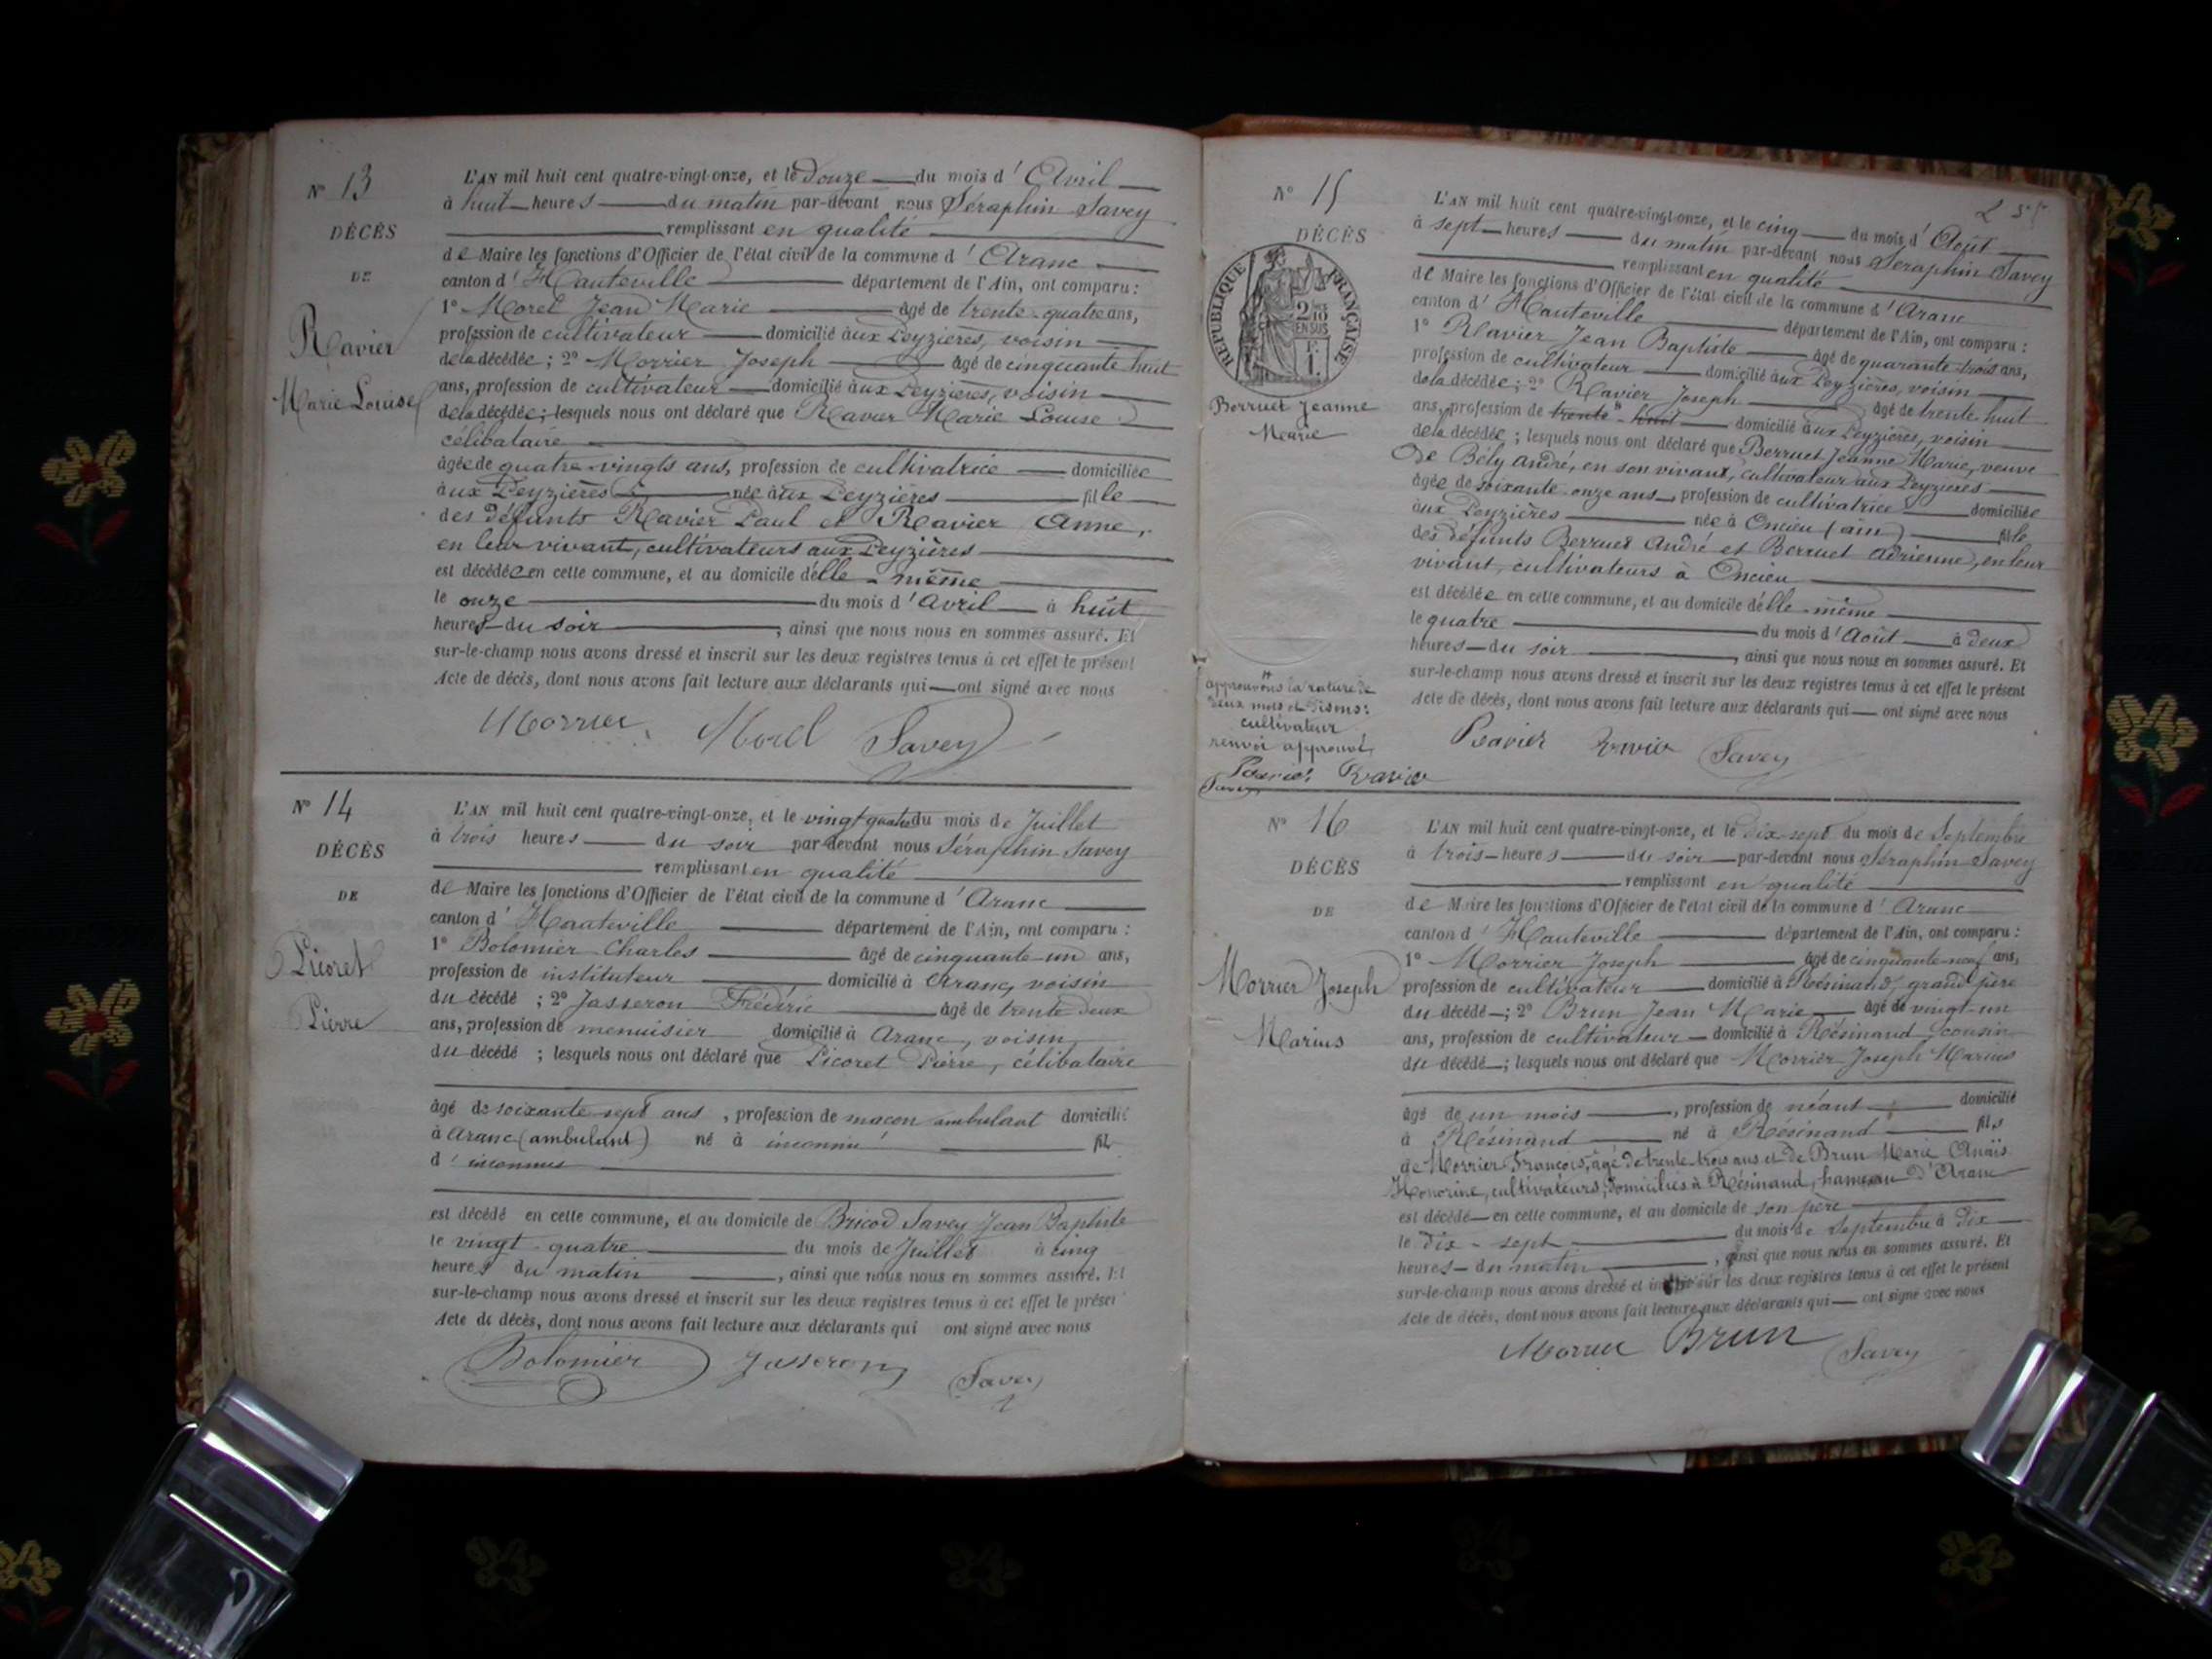 N° 13
DÉCÈS
DE
Ravier
Marie Louise
L'AN mil huit cent quatre-vingt-onze, et le Douze du mois d'Avril
à huit heures du matin par-devant nous Séraphin Savey
remplissant en qualité
de Maire les fonctions d'Officier de l'état civil de la commune d'Aranc
canton d'Hauteville département de l'Ain, ont comparu :
1° Morel Jean Marie âgé de trente-quatre ans,
profession de cultivateur domicilié aux Peyzières, voisin
de la décédée ; 2° Morrier Joseph âgé de cinquante huit
ans, profession de cultivateur domicilié aux Peyzières, voisin
de la décédée ; lesquels nous ont déclaré que Ravier Marie Louise
célibataire
âgée de quatre-vingts ans, profession de cultivatrice domiciliée
aux Peyzières née aux Peyzières fille
des défunts Ravier Paul et Ravier Anne,
en leur vivant, cultivateurs aux Peyzières
est décédée en cette commune, et au domicile d'elle-même
le onze du mois d'Avril à huit
heures du soir, ainsi que nous nous en sommes assuré. Et
sur-le-champ nous avons dressé et inscrit sur les deux registres tenus à cet effet le présent
Acte de décès, dont nous avons fait lecture aux déclarants qui ont signé avec nous
Morrier Morel Savey
N° 14
DÉCÈS
DE
Picoret
Pierre
L'AN mil huit cent quatre-vingt-onze, et le vingt quatre du mois de Juillet
à trois heures du soir par-devant nous Séraphin Savey
remplissant en qualité
de Maire les fonctions d'Officier de l'état civil de la commune d'Aranc
canton d'Hauteville département de l'Ain, ont comparu :
1° Bolomier Charles âgé de cinquante-un ans,
profession de instituteur domicilié à Aranc, voisin
du décédé ; 2° Jasseron Frédéric âgé de trente deux
ans, profession de menuisier domicilié à Aranc, voisin
du décédé ; lesquels nous ont déclaré que Picoret Pierre, célibataire
âgé de soixante-sept ans, profession de maçon ambulant domicilié
à Aranc (ambulant) né à inconnu fils
d'inconnus
est décédé en cette commune, et au domicile de Bricod Savey Jean Baptiste
le vingt-quatre du mois de Juillet à cinq
heures du matin, ainsi que nous nous en sommes assuré. Et
sur-le-champ nous avons dressé et inscrit sur les deux registres tenus à cet effet le présent
Acte de décès, dont nous avons fait lecture aux déclarants qui ont signé avec nous
Bolomier Jasseron Savey
N° 15
DÉCÈS
RÉPUBLIQUE FRANÇAISE
2/10 EN SUS
1 F.
Berruet Jeanne
Marie
L'AN mil huit cent quatre-vingt-onze, et le cinq du mois d'Août
à sept heures du matin par-devant nous Séraphin Savey
remplissant en qualité
de Maire les fonctions d'Officier de l'état civil de la commune d'Aranc
canton d'Hauteville département de l'Ain, ont comparu :
1° Ravier Jean Baptiste âgé de quarante-trois ans,
profession de cultivateur domicilié aux Peyzières, voisin
de la décédée ; 2° Ravier Joseph âgé de trente-huit
ans, profession de trente-huit domicilié aux Peyzières, voisin
de la décédée ; lesquels nous ont déclaré que Berruet Jeanne Marie, veuve
De Bély André, en son vivant, cultivateur aux Peyzières
âgée de soixante-onze ans, profession de cultivatrice domiciliée
aux Peyzières née à Oncieu (ain) fille
des défunts Berruet André et Berruet Adrienne, en leur
vivant, cultivateurs à Oncieu
est décédée en cette commune, et au domicile d'elle-même
le quatre du mois d'Août à deux
heures du soir, ainsi que nous nous en sommes assuré. Et
sur-le-champ nous avons dressé et inscrit sur les deux registres tenus à cet effet le présent
Acte de décès, dont nous avons fait lecture aux déclarants qui ont signé avec nous
approuvons la rature de
deux mots et disons :
cultivateur
renvoi approuvé,
Ravier Ravier
Savey
Ravier Ravier Savey
N° 16
DÉCÈS
DE
Morrier Joseph
Marius
L'AN mil huit cent quatre-vingt-onze, et le dix-sept du mois de Septembre
à trois heures du soir par-devant nous Séraphin Savey
remplissant en qualité
de Maire les fonctions d'Officier de l'état civil de la commune d'Aranc
canton d'Hauteville département de l'Ain, ont comparu :
1° Morrier Joseph âgé de cinquante-neuf ans,
profession de cultivateur domicilié à Résinand, grand père
du décédé ; 2° Brun Jean Marie âgé de vingt-un
ans, profession de cultivateur domicilié à Résinand cousin
du décédé ; lesquels nous ont déclaré que Morrier Joseph Marius
âgé de un mois, profession de néant domicilié
à Résinand né à Résinand fils
de Morrier François, âgé de trente-trois ans et de Brun Marie Anaïs
Honorine, cultivateurs, domiciliés à Résinand, hameau d'Aranc
est décédé en cette commune, et au domicile de son père
le dix-sept du mois de Septembre à dix
heures du matin, ainsi que nous nous en sommes assuré. Et
sur-le-champ nous avons dressé et inscrit sur les deux registres tenus à cet effet le présent
Acte de décès, dont nous avons fait lecture aux déclarants qui ont signé avec nous
Morrier Brun Savey